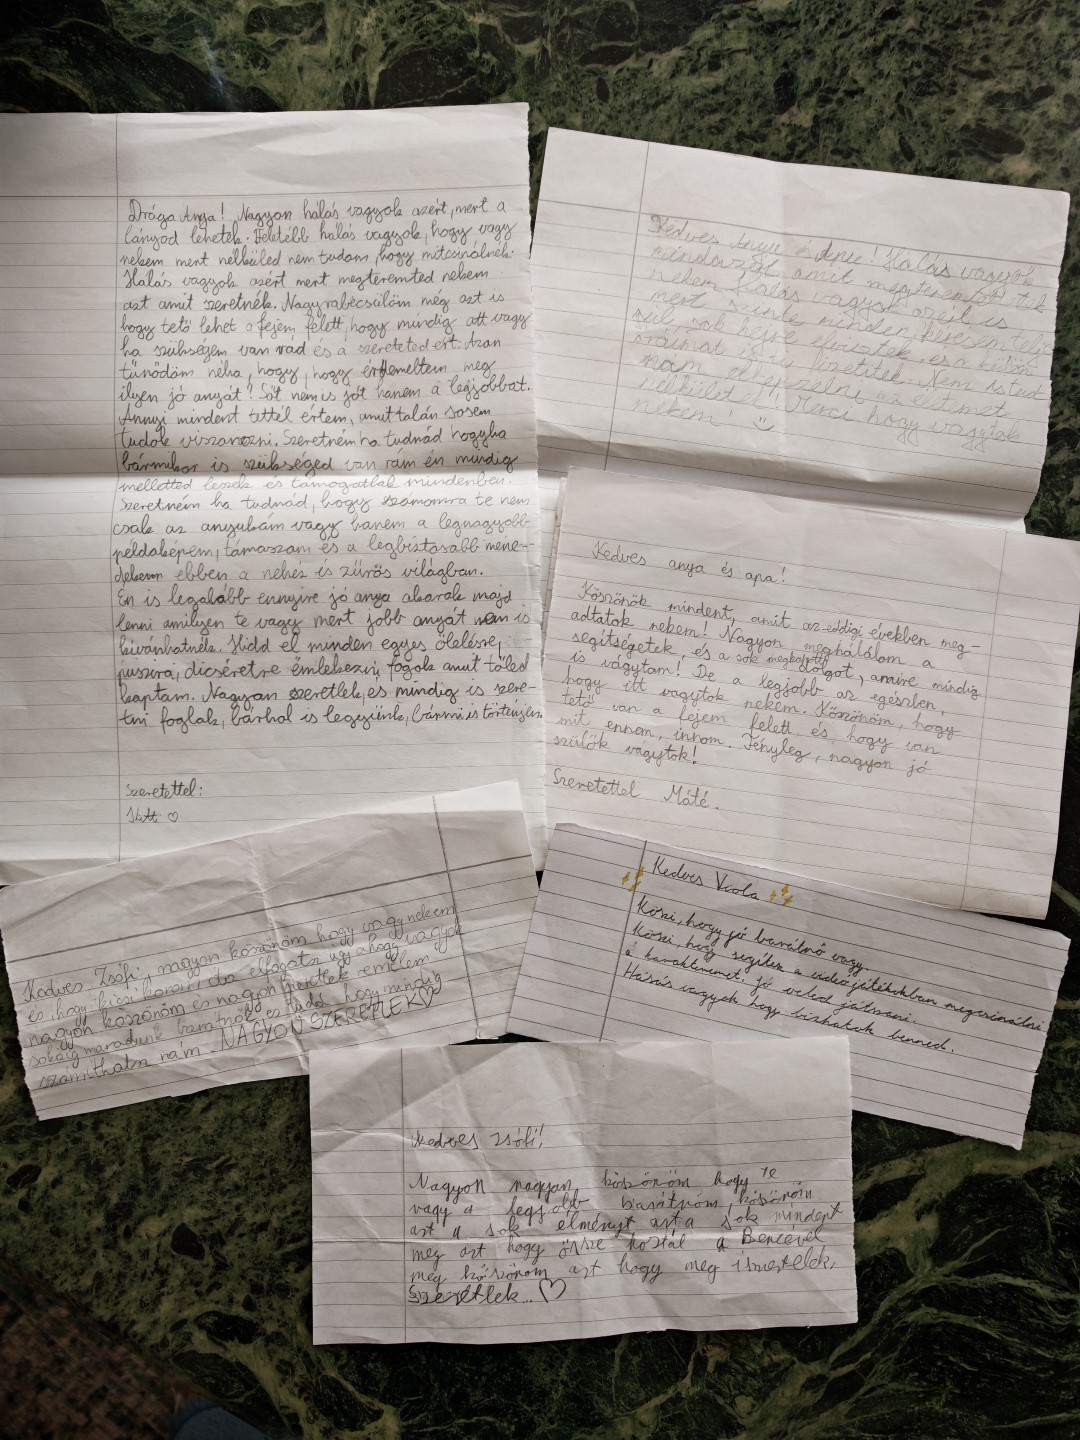 Drága Anya! Nagyon hálás vagyok azért, mert a
lányod lehetek. Felétébb hálás vagyok, hogy vagy
nekem mert nélküled nem tudom, hogy mitcsinálnék.
Hálás vagyok azért mert megteremted nekem
azt amit szeretnék. Nagyrabecsülöm még azt is
hogy tető lehet a fejem felett, hogy mindig ott vagy
ha szükségem van rád és a szereteted ért. Azon
tűnődöm néha, hogy, hogy érdemeltem meg
ilyen jó anyát? Sőt nem is jót hanem a legjobbat.
Annyi mindent tettél értem, amit talán sosem
tudok viszanozni. Szeretném ha tudnád hogyha
bármikor is szükséged van rám én mindig
melletted leszek és támogatlak mindenben.
Szeretném ha tudnád, hogy számomra te nem
csak az anyukám vagy hanem a legnagyobb
példaképem, támaszom és a legbiztosabb mene-
dékem ebben a nehéz és zűrös világban.
Én is legalább ennyire jó anya akarok majd
lenni amilyen te vagy mert jobb anyát nem is
kívánhatnék. Hidd el minden egyes ölelésre,
puszira, dicséretre emlékezni fogok amit tőled
kaptam. Nagyon szeretlek, és mindig is szere-
tni foglak, bárhol is legyünk, bármi is történjen.
Szeretettel:
Kedves Anyu és Apu! Hálás vagyok
mindazért amit megteremtettetek
nekem. Hálás vagyok azért is
mert szinte minden kérésem telje
sül, sok helyre elvisztek, és a külön
óráimat is ki fizetitek. Nem is tud
nám elképzelni az életemet
nélkületek! Merci hogy vagytok
nekem! ☺
Kedves anya és apa!
Köszönök mindent, amit az eddigi években meg-
adtatok nekem! Nagyon meghálálom a
segítségetek, és a sok megkapott dolgot, amire mindig
is vágytam! De a legjobb az egészben,
hogy itt vagytok nekem. Köszönöm, hogy
tető van a fejem felett és hogy van
mit ennem, innom. Tényleg, nagyon jó
szülők vagytok!
Szeretettel Máté.
Kedves Zsófi, nagyon köszönöm hogy vagy nekem
és hogy kicsi korom óta elfogatsz úgy ahogy vagyok
nagyon köszönöm és nagyon szeretlek remélem
sokáig maradunk barátnők és tudd hogy mindig
számíthatsz rám. NAGYON SZERETLEK♡
Kedves Viola
Köszi, hogy jó barátnő vagy.
Köszi, hogy segítesz a videójátékokban megcsinálni
a karakteremet. Jó veled játszani.
Hálás vagyok hogy bízhatok benned.
Kedves Zsófi!
Nagyon nagyon köszönöm hogy te
vagy a legjobb barátnőm, köszönöm
azt a sok élményt azt a sok mindent
meg azt hogy össze hoztál a Bencével
meg köszönöm azt hogy meg ismertelek,
Szeretlek... ♡